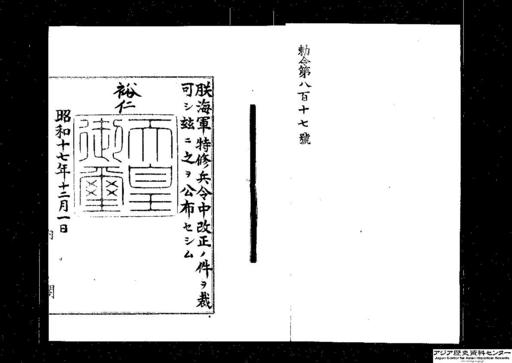 勅令第八百十七號
朕海軍特修兵令中改正ノ件ヲ裁
可シ玆ニ之ヲ公布セシム
裕仁
天皇御璽
昭和十七年十二月一日
内閣
アジア歴史資料センター
Japan Center for Asian Historical Records